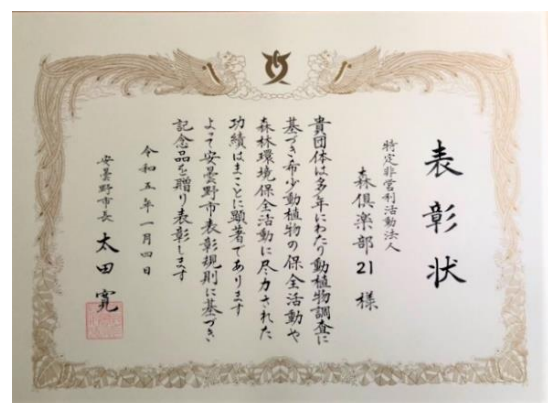 表彰状
特定非営利活動法人
森倶楽部21 様
貴団体は多年にわたり動植物調査に
基づき希少動植物の保全活動や
森林環境保全活動に尽力された
功績はまことに顕著であります
よって安曇野市表彰規則に基づき
記念品を贈り表彰します
令和五年一月四日
安曇野市長 太田寛